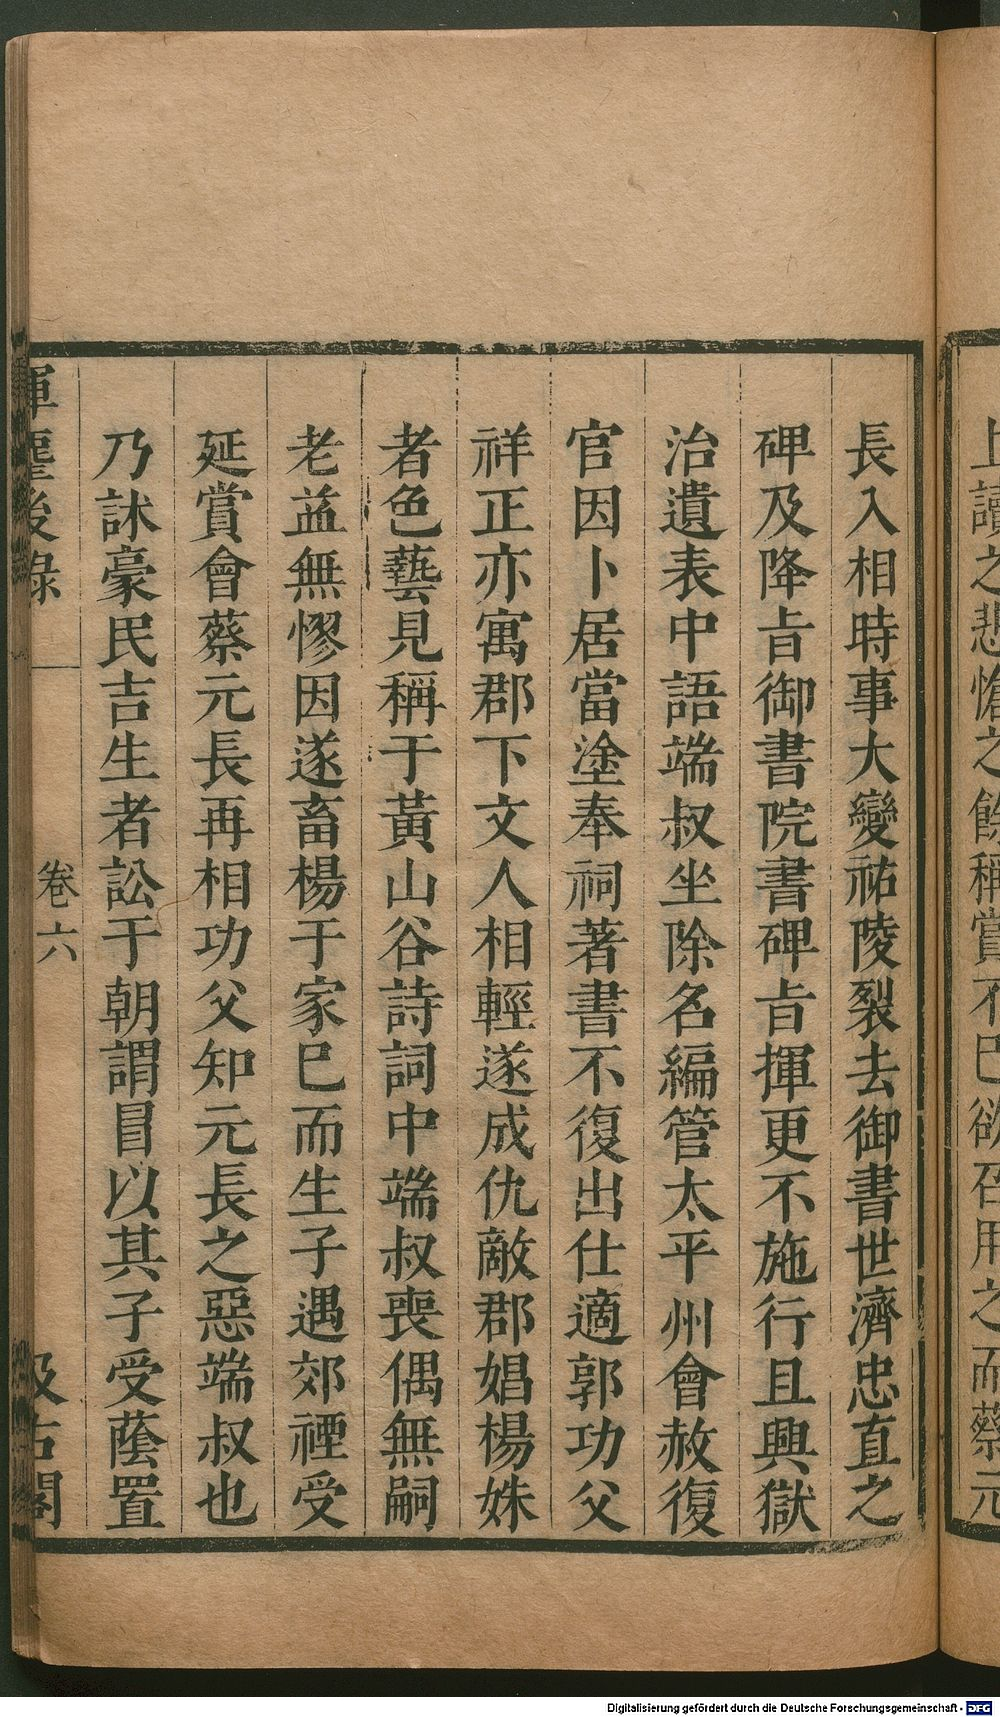 上讀之悲愴之餘稱賞不巳欲召用之而蔡元
長入相時事大變祐陵裂去御書世濟忠直之
碑及降㫖御書院書碑㫖揮更不施行且興獄
治遺表中語端叔坐除名編管太平州會赦復
官因卜居當塗奉祠著書不復出仕適郭功父
祥正亦寓郡下文人相輕遂成仇敵郡娼楊姝
者色藝見稱于黃山谷詩詞中端叔喪偶無嗣
老益無憀因遂畜楊于家巳而生子遇郊禋受
延賞會蔡元長再相功父知元長之惡端叔也
乃訹豪民吉生者訟于朝謂冒以其子受蔭置
揮麈後錄
卷六
汲古閣
Digitalisierung gefördert durch die Deutsche Forschungsgemeinschaft - DFG